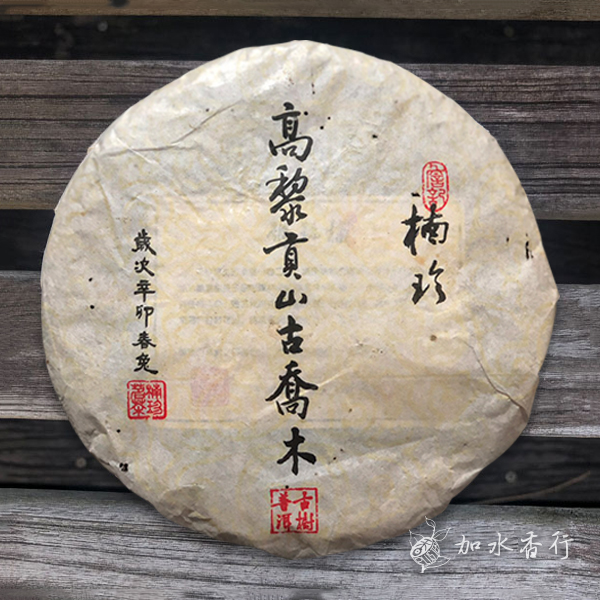 楠珍
高黎貢山古喬木
古樹
普洱
歲次辛卯春兔
加水香行